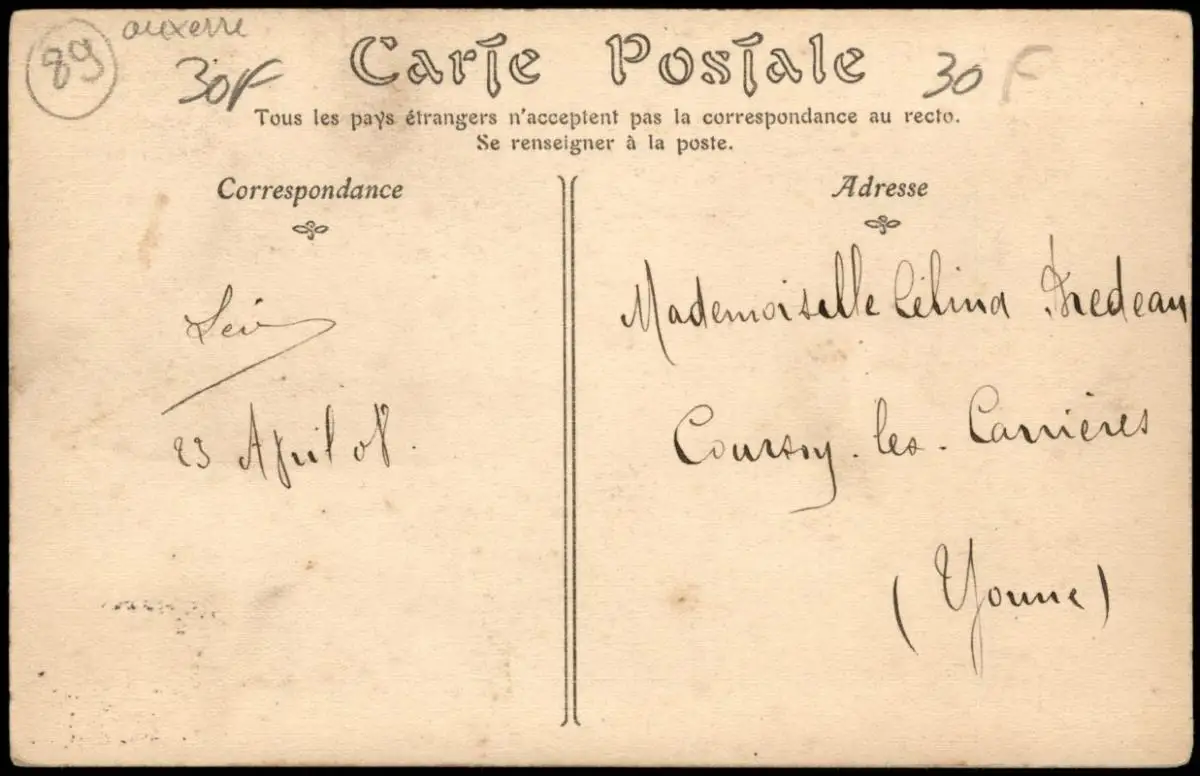 89
auxerre
30F
Carte Postale
30 F
Tous les pays étrangers n'acceptent pas la correspondance au recto.
Se renseigner à la poste.
Correspondance
23 April 08.
Adresse
Mademoiselle Célina
Courson-les-Carrières
(Yonne)